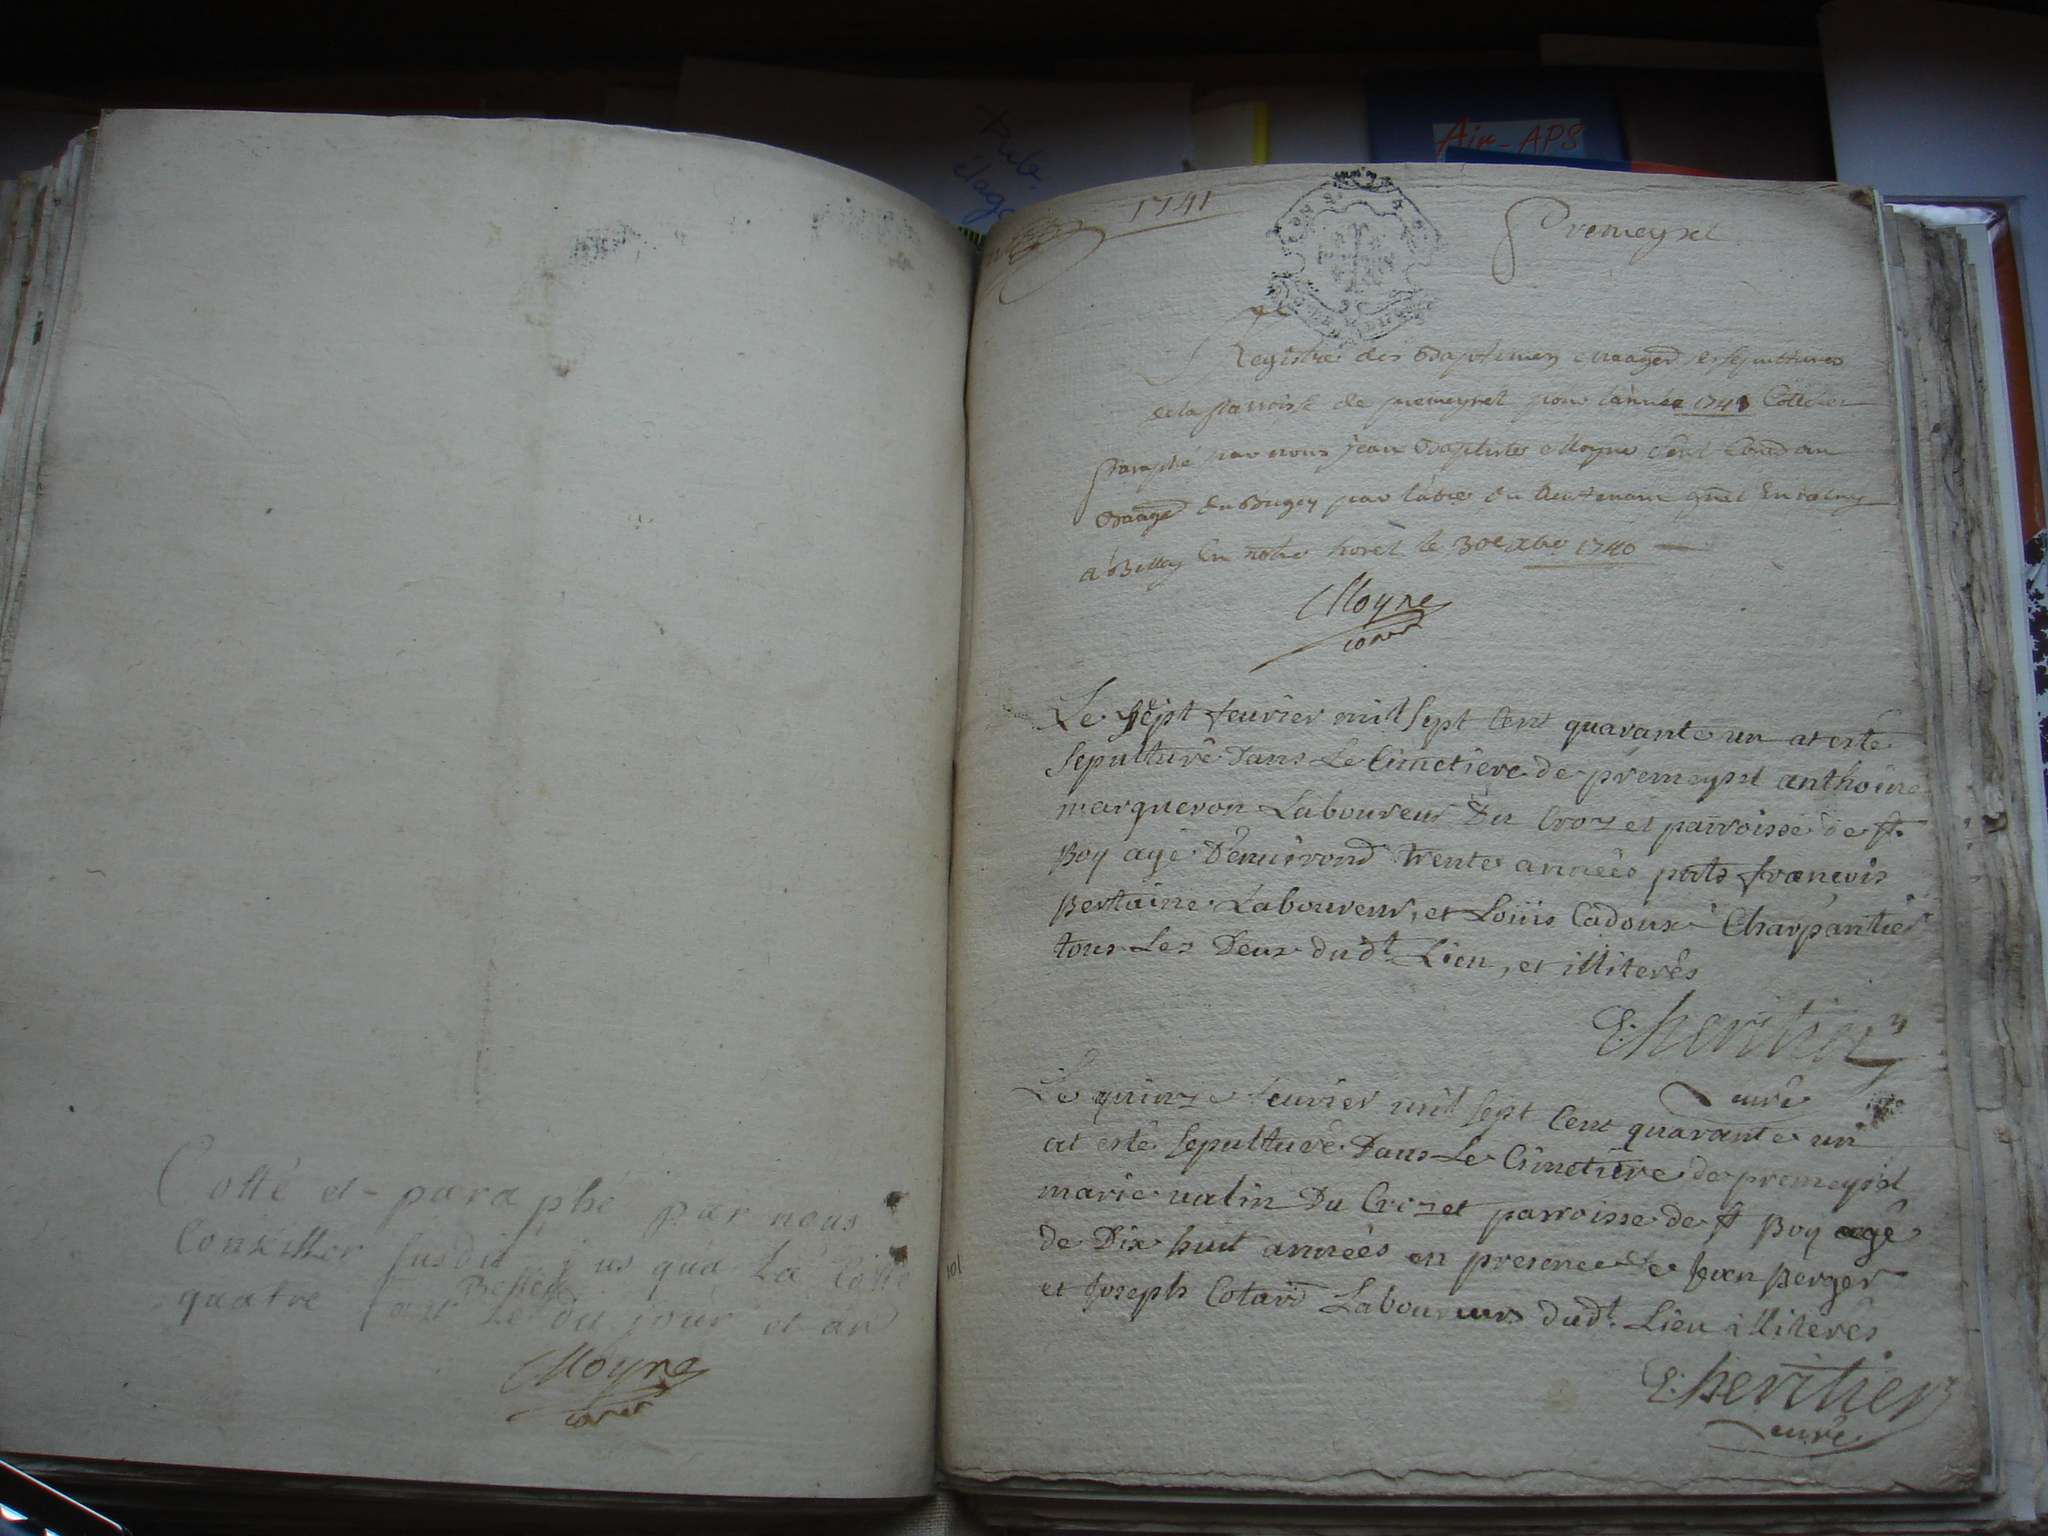 Cotté et paraphé par nous
Conseiller susdit jus qua La Cotte
quatre Belley
Le dit jour et an
Moyne
1741
Premeyzel
Registre des Baptemes mariages et sepultures
de la parroisse de premeyzel pour l'année 1741 Cotté et
paraphé par nous jean Baptiste Moyne
Bugey par
à Belley En notre hotel le 30e xbre 1740
Moyne
Le sept feurier mil sept Cent quarante un at esté
sepulturé Dans Le Cimetiere de premeyzel anthoine
marqueron Laboureur Du Crozet parroisse de st.
Boy agé D'enuirond trente années puts francois
Bertaine Laboureur, et Loüis Cadoux Charpantier
tous Les Deux dudt. Lieu, et illiterés
L'heritier
curé
Le quinze feurier mil sept Cent quarante un
at esté sepulturé Dans Le Cimetiere de premeyzel
marie valin Du Crozet parroisse de st Boy agé
de Dix huit années en presence de Jean Berger
et Joseph Cotard Laboureurs dudt. Lieu illiterés
L'heritier
curé
101
Air-APS